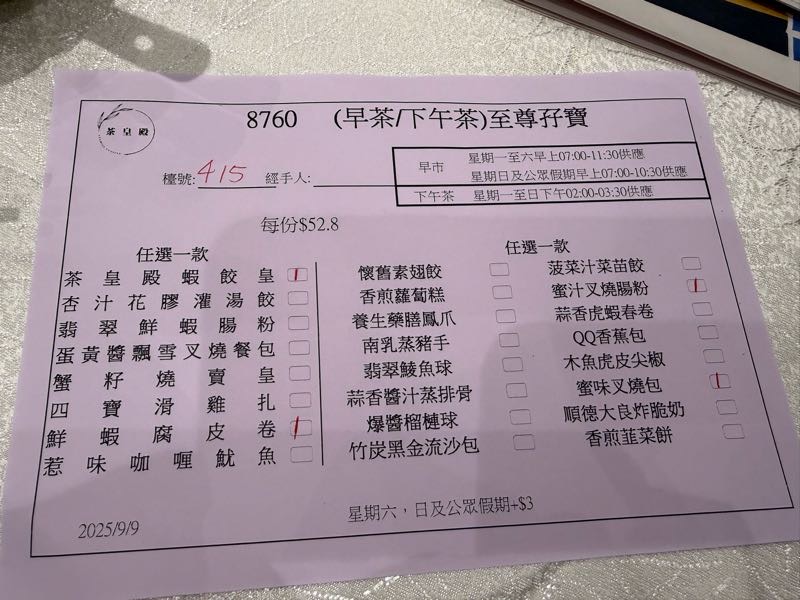 茶皇殿
8760 (早茶/下午茶)至尊孖寶
檯號: 415 經手人:
早市 星期一至六早上07:00-11:30供應
星期日及公眾假期早上07:00-10:30供應
下午茶 星期一至日下午02:00-03:30供應
每份$52.8
任選一款
茶皇殿蝦餃皇 1
杏汁花膠灌湯餃
翡翠鮮蝦腸粉
蛋黃醬飄雪叉燒餐包
蟹籽燒賣皇
四寶滑雞扎
鮮蝦腐皮卷 1
惹味咖喱魷魚
任選一款
懷舊素翅餃
香煎蘿蔔糕
養生藥膳鳳爪
南乳蒸豬手
翡翠鯪魚球
蒜香醬汁蒸排骨
爆醬榴槤球
竹炭黑金流沙包
菠菜汁菜苗餃
蜜汁叉燒腸粉 1
蒜香虎蝦春卷
QQ香蕉包
木魚虎皮尖椒
蜜味叉燒包 1
順德大良炸脆奶
香煎韮菜餅
星期六，日及公眾假期+$3
2025/9/9